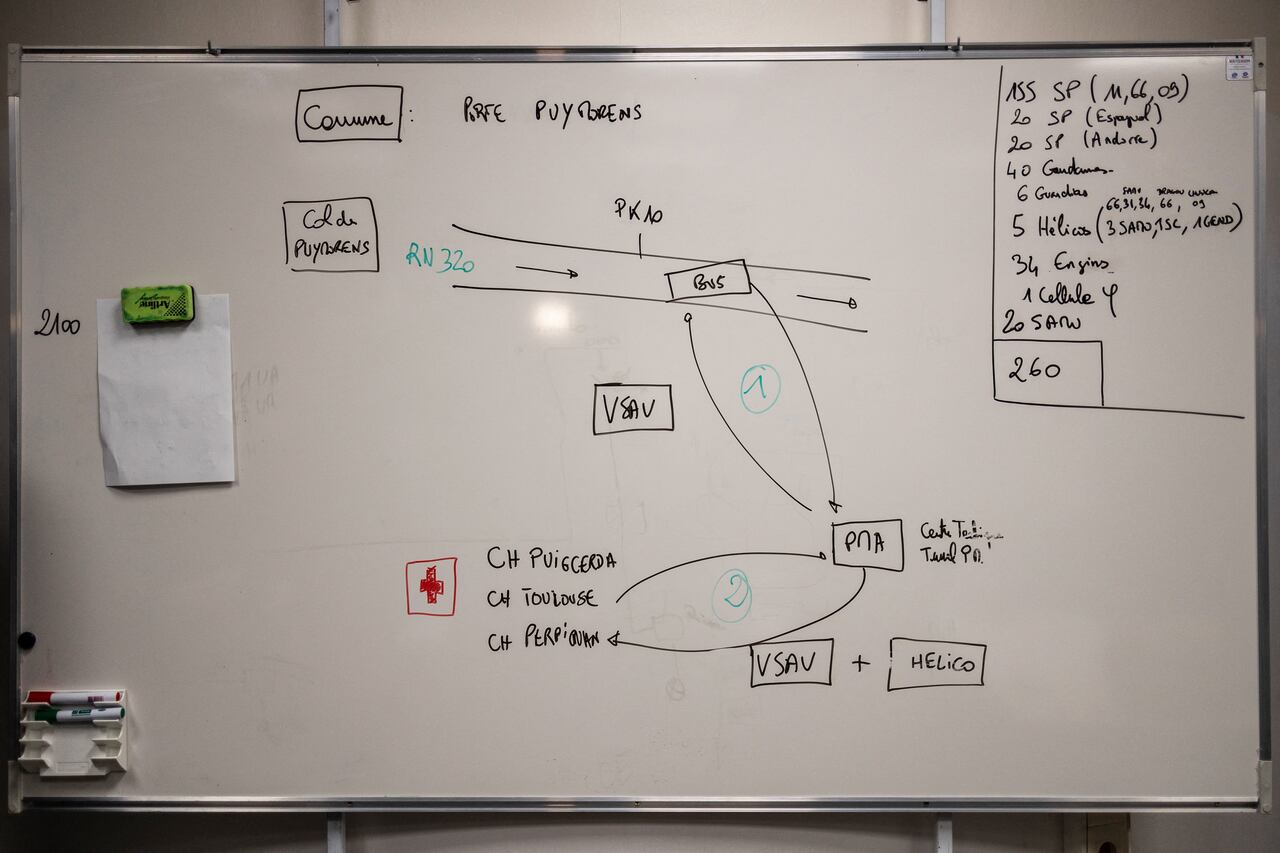 Commune : PORTE PUYMORENS
Col de
PUYMORENS
2100
RN320
PK10
BUS
1
VSAV
PMA
Centre
Tunnel
2
CH PUIGCERDA
CH TOULOUSE
CH PERPIGNAN
VSAV + HELICO
155 SP (11,66,09)
20 SP (Espagnol)
20 SP (Andorre)
40 Gendarmes
6
SAMU DRAGON
66,31,34, 66, 09
5 Hélicos (3 SAMU, 1SC, 1GEND)
34 Engins
1 Cellule Ψ
20 SAMU
260
Artline